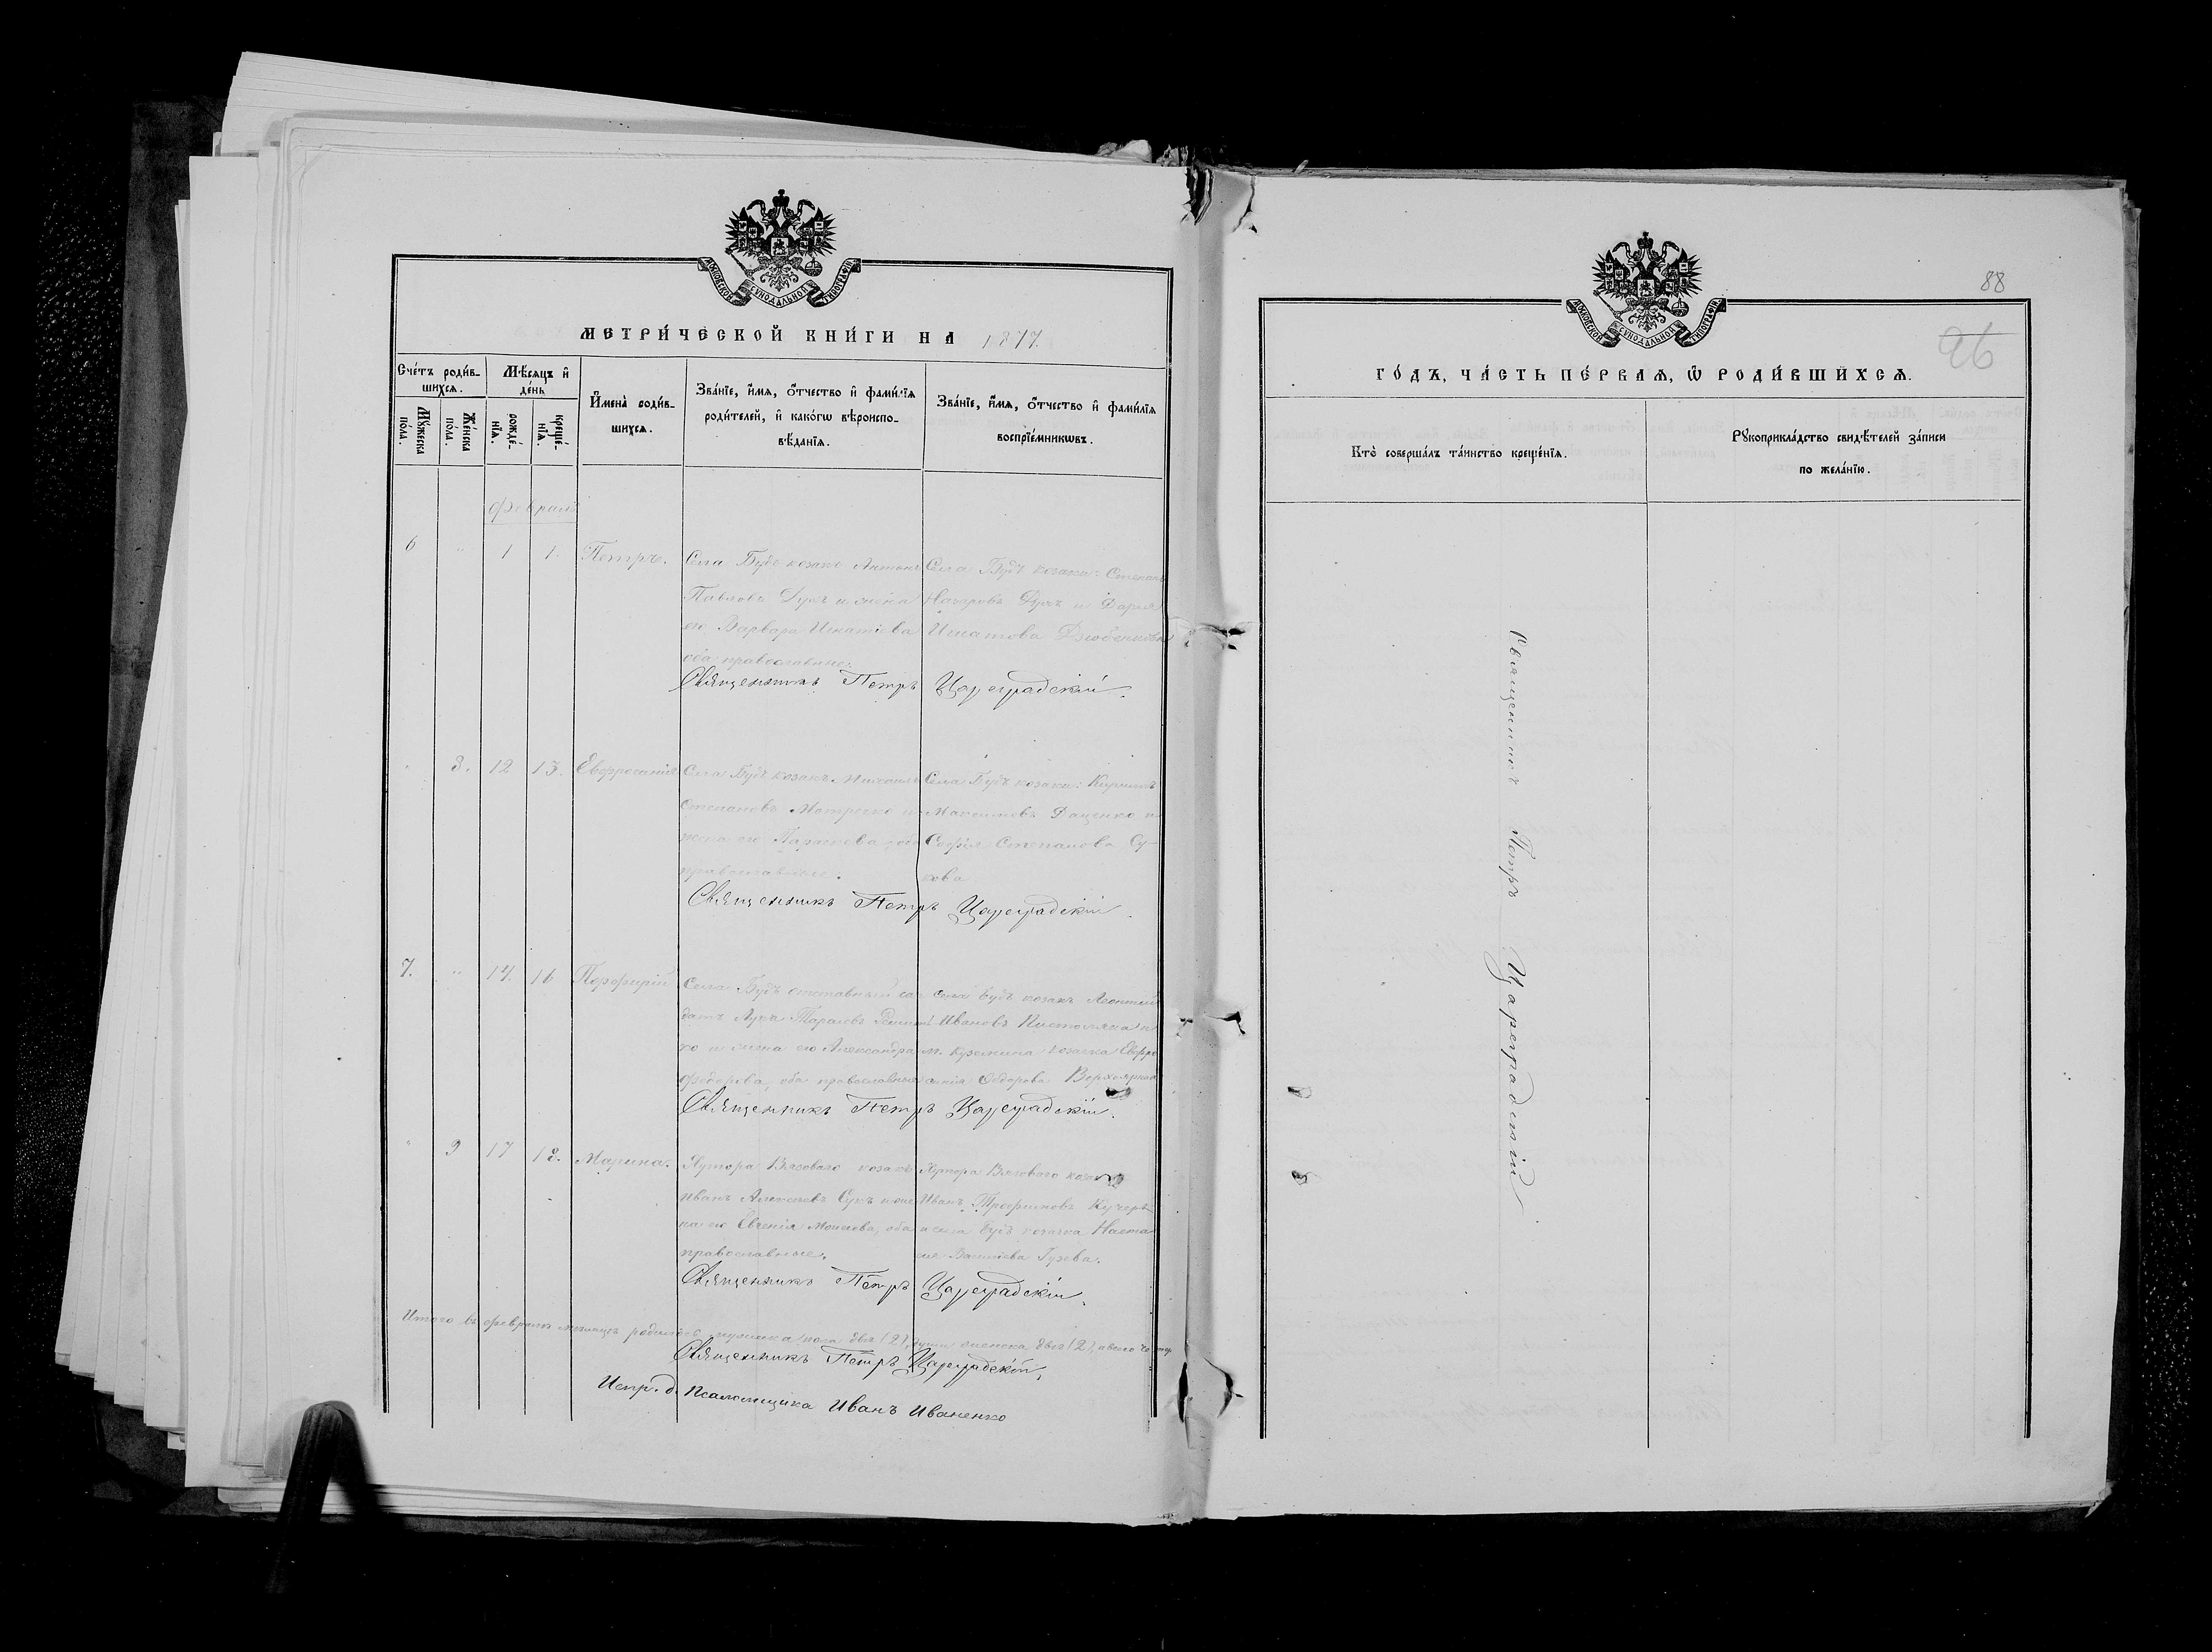 МОСКОВСКОЙ СѴНОДАЛЬНОЙ ТИПОГРАФІИ
МЕТРИ́ЧЕСКОЙ КНИ́ГИ НА 1877.
Сче́тъ роди́в-
шихсѧ.
Мѣ́сѧцъ и҆
де́нь
Мꙋ́жеска
по́ла.
Же́нска
по́ла.
рожде́-
нїѧ.
креще́-
нїѧ.
И҆мена̀ роди́в-
шихсѧ.
Зва́нїе, и҆́мѧ, ѻ҆́тчество и҆ фами́лїѧ
роди́телей, и҆ како́гѡ вѣроиспо-
вѣ́данїѧ.
Зва́нїе, и҆́мѧ, ѻ҆́тчество и҆ фами́лїѧ
воспрїе́мникѡвъ.
Февраль
6 " 1 1. Петръ.
Села Будъ козакъ Антонъ
Павловъ Духъ и жена
его Варвара Игнатіева
оба православные.
Села Будъ козаки: Степанъ
Назаровъ Духъ и Дарія
Игнатова
Священникъ Петръ Цареградскій.
" 8. 12 13. Евфросинія
Села Будъ козакъ Михаилъ
Степановъ и
жена его Параскева, оба
православные.
Села Будъ козаки: Кириллъ
Максимовъ Даценко и
Софія Степанова Су-
кова
Священникъ Петръ Цареградскій.
7. " 14. 16 Порфирій
Села Будъ отставный сол
датъ Лука Тарасовъ
ко и жена его Александра
Федорова, оба православные
Села Будъ козакъ Леонтій
Ивановъ и
козачка Евфро
синія Федорова
Священникъ Петръ Цареградскій.
" 9 17 18. Марина.
Хутора Вязоваго козакъ
Иванъ Алексѣевъ Сукъ и же
на его Евгенія Моисеева, оба
православные.
Хутора Вязоваго козакъ
Иванъ Трофимовъ
и села Будъ козачка Наста
сія Васильева Гузева.
Священникъ Петръ Цареградскій.
Итого въ февралѣ мѣсяцѣ родилось мужска пола два (2), женска два (2), а всего
Священникъ Петръ Цареградскій.
Испр. д. Псаломщика Иванъ Иваненко
88
96
МОСКОВСКОЙ СѴНОДАЛЬНОЙ ТИПОГРАФІИ
ГО́ДЪ, ЧА́СТЬ ПЕ́РВАѦ, Ѡ҆ РОДИ́ВШИХСѦ.
Кто̀ соверша́лъ та́инство креще́нїѧ.
Рꙋкоприкла́дство свидѣ́телей за́писи
по жела́нїю.
Священникъ Петръ Цареградскій